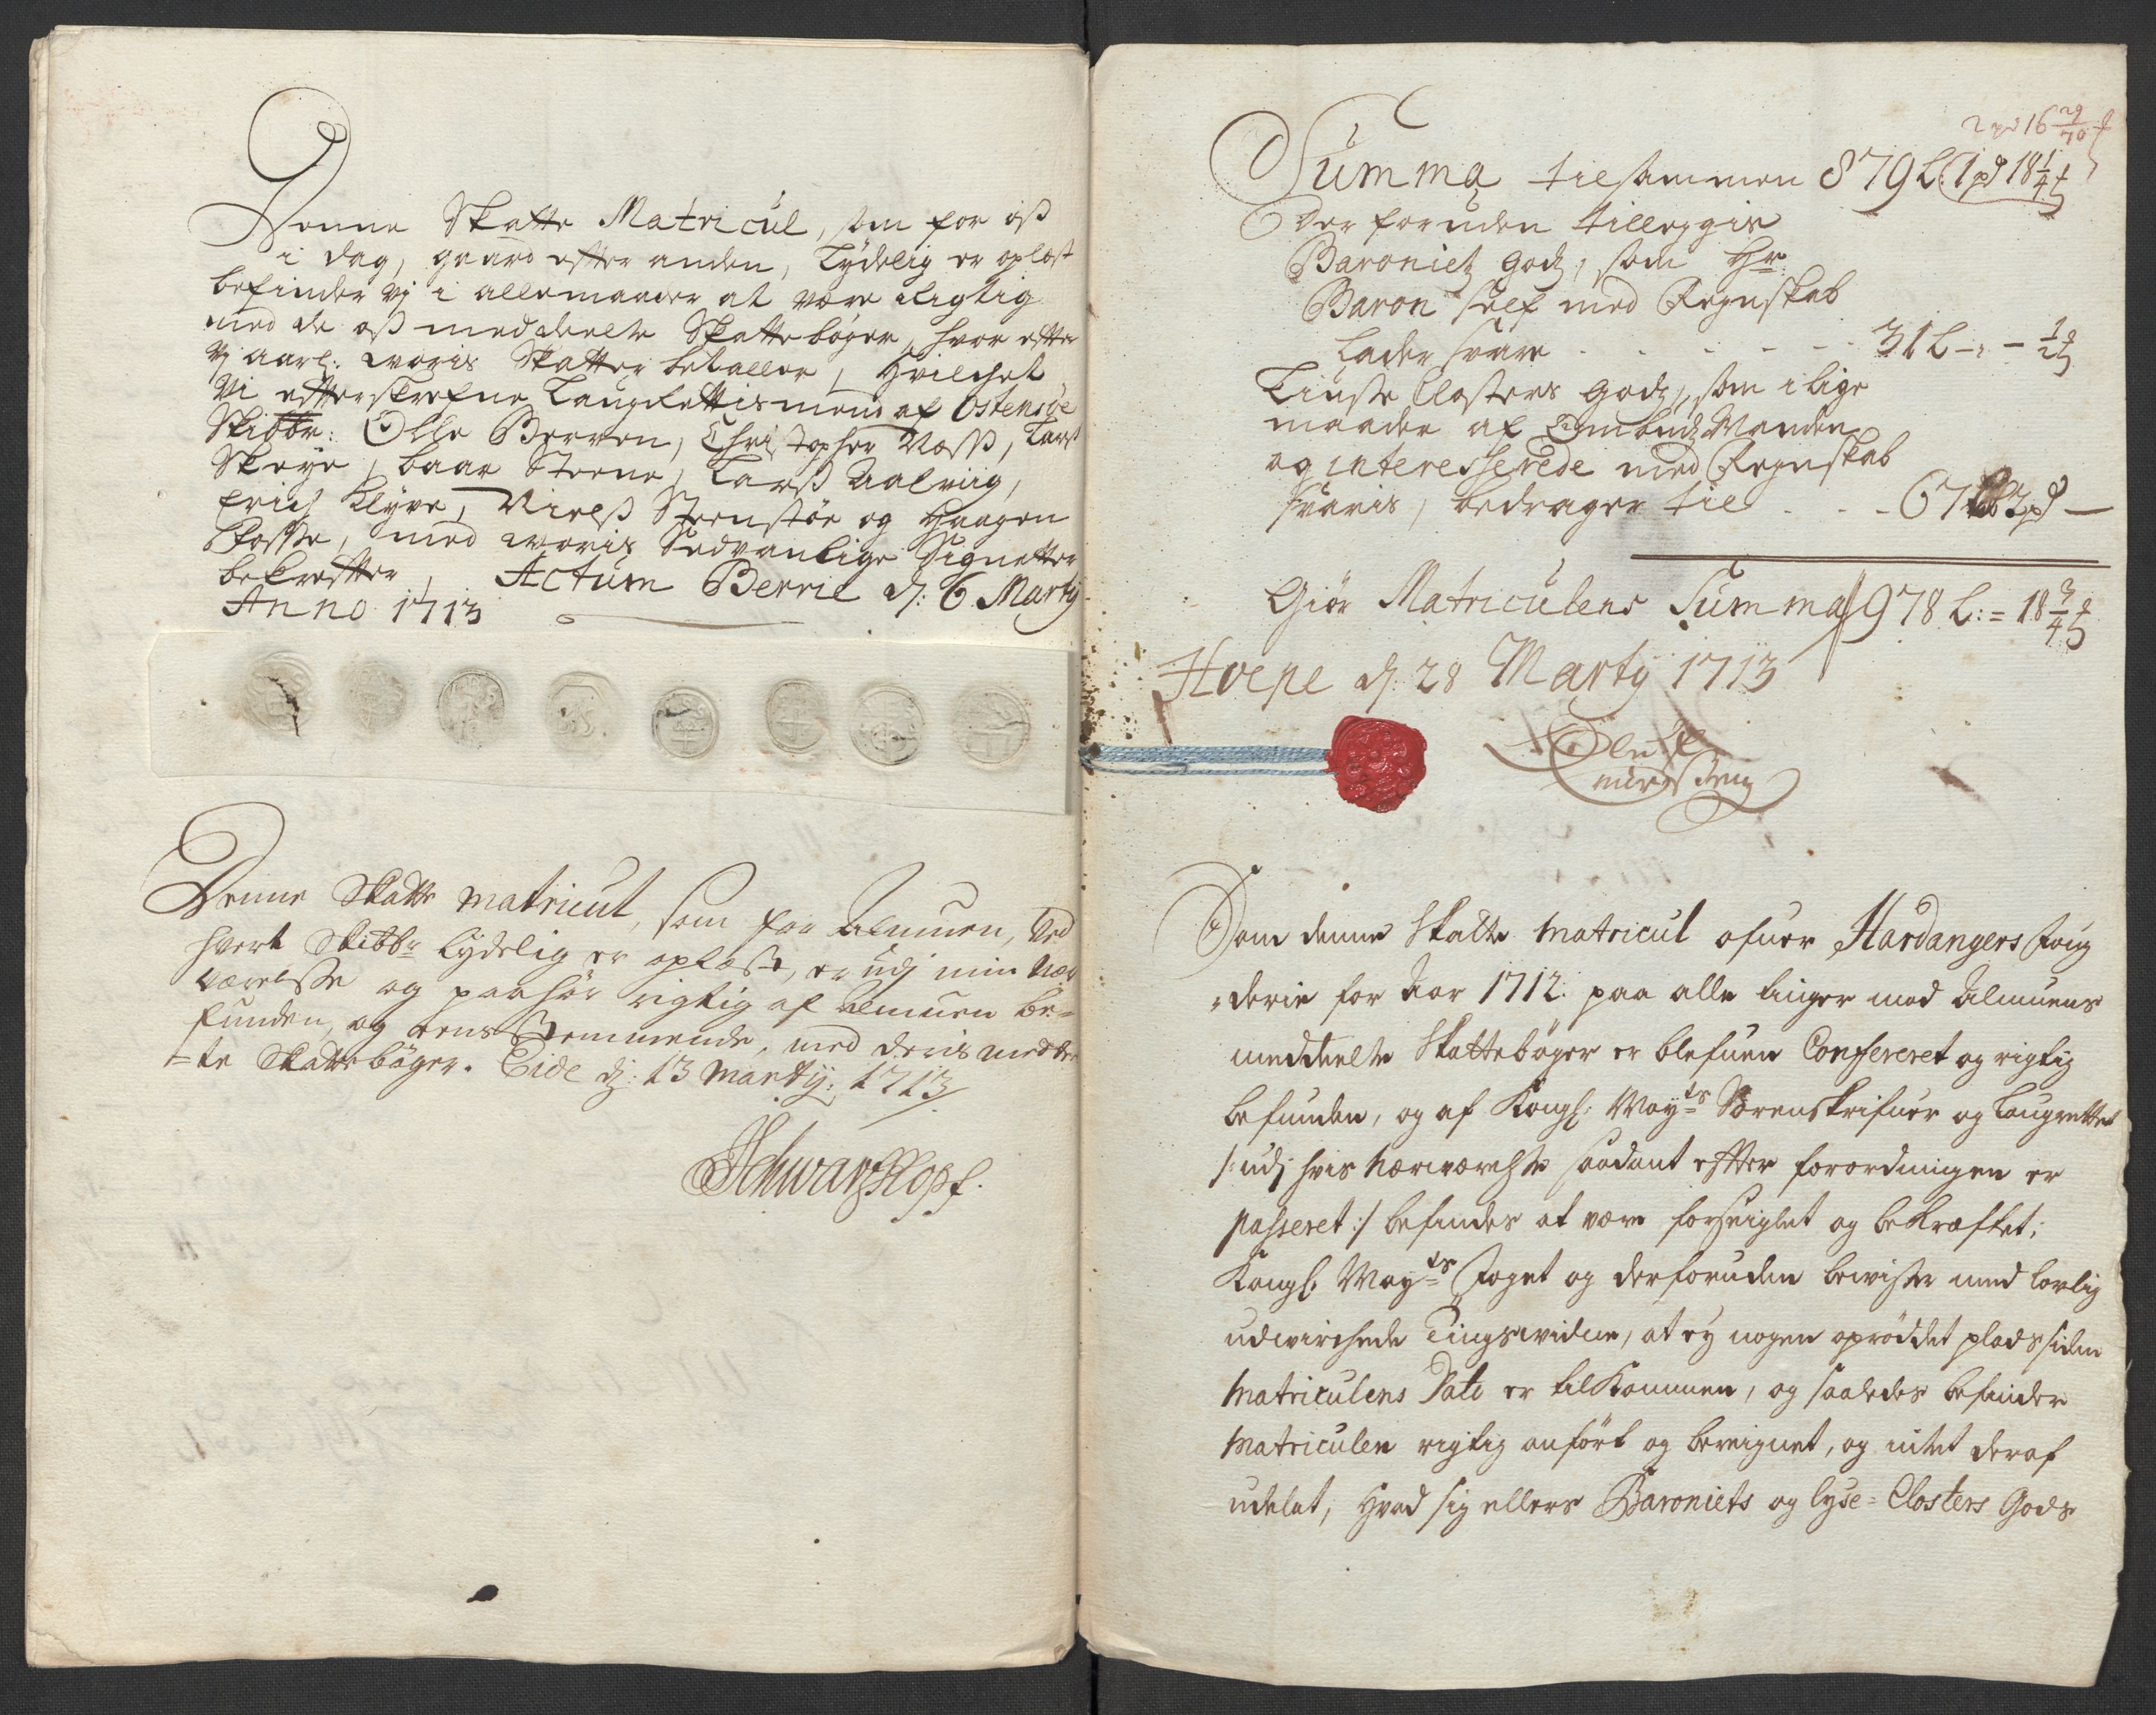 Denne Skatte Matricul, som for oß
i dag, gaard efter anden, Lydelig er oplæst
befinder vj i allemaader at være rigtig
med de oß meddeelte Skattebøger, hvor efter
vj aarl: woris Skatter betaller, hvilchet
Vi efterskrefne Laugrettismend af Ostensøe
Skibbr: Olle Berven, Christopher Næss, Lars
Skeye, baar Steene, Larß Aalviig,
Erich Klyve, Nielß Steenstøe og Haagen
med woris Sedvanlige Signetter
bekrefter, Actum Berrie d: 6 Martij
Anno 1713
Denne Skatte matricul, som for Almuen, ved
hvert Skibbr lydelig er oplæst, er udj min nær
værelsse og paahør rigtig af Almuen be-
funden, og eens stemmende, med deris meddel
-te Skattebøger. Eide d: 13 martij: 1713
Schwartzkopf.
2 pd 16 29/70
Summa tilsammen 879 L: 1 pd 18 1/4
Der foruden tilleggis
Baroniets Gods, som Hr
Baron self med Regnskab
Lader svare - - - 31 L - - 1/2
Liuse Closters gods, som i lige
maader af Ombudsmanden
og interesserede med Regnskab
svaris, bedrager til - - 67 2 pd -
Giør Matriculens Summa 978 L: = 18 3/4
d: 28 Martij 1713
Som denne Skatte matricul ofuer Hardangers foug
-derie for Aar 1712. paa alle tinger med Almuens
meddeelte Skattebøger er blefuen Confereret og rigtig
befunden, og af Kongl: Mayts Sorenskrifuer og Laugrettet
/: udj hvis nærværelsse saadant efter forordningen er
passeret :/ befindes at være forseiglet og bekræftet;
Kongl: Mayts foget og derforuden bewiser med lovlig
udwirchede Tingswidne, at ey nogen oprøddet plads siden
Matriculens Dato er tilkommen, og saaledes befinder
Matriculen rigtig anført og bereignet, og intet deraf
udelat, hvad sig ellers Baroniets og lyse-Closters Gods